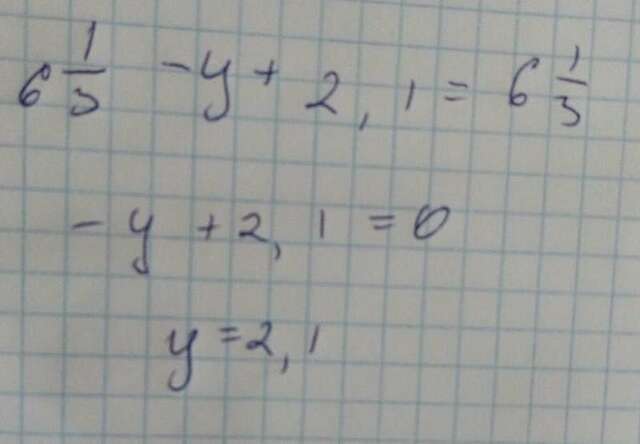 6 1/3 - y + 2,1 = 6 1/3
- y + 2,1 = 0
y = 2,1